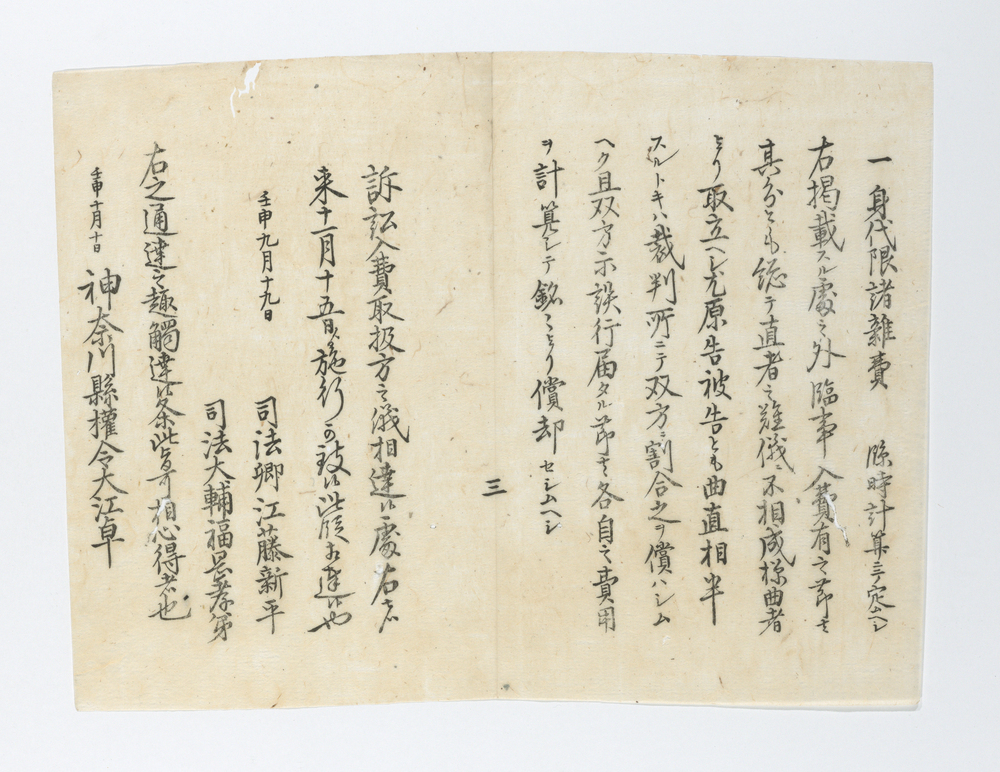 一 身代限諸雑費 臨時計算ニテ定ムヘシ
右掲載スル處之外臨事入費有之節ハ
其分とも総テ直者之難儀ニ不相成様曲者
より取立ヘシ尤原告被告とも曲直相半
スルトキハ裁判所ニテ双方ニ割合之ヲ償ハシム
ヘク且双方示談行届タル節ハ各自之費用
ヲ計算シテ銘々より償却セシムヘシ
三
訴訟入費取扱方之儀相達候處右者
来十一月十五日ゟ施行可致候此段相達候也
壬申九月十九日
司法卿江藤新平
司法大輔福岡孝弟
右之通達之趣觸達候条此旨可相心得者也
壬申十月十日
神奈川縣權令大江卓